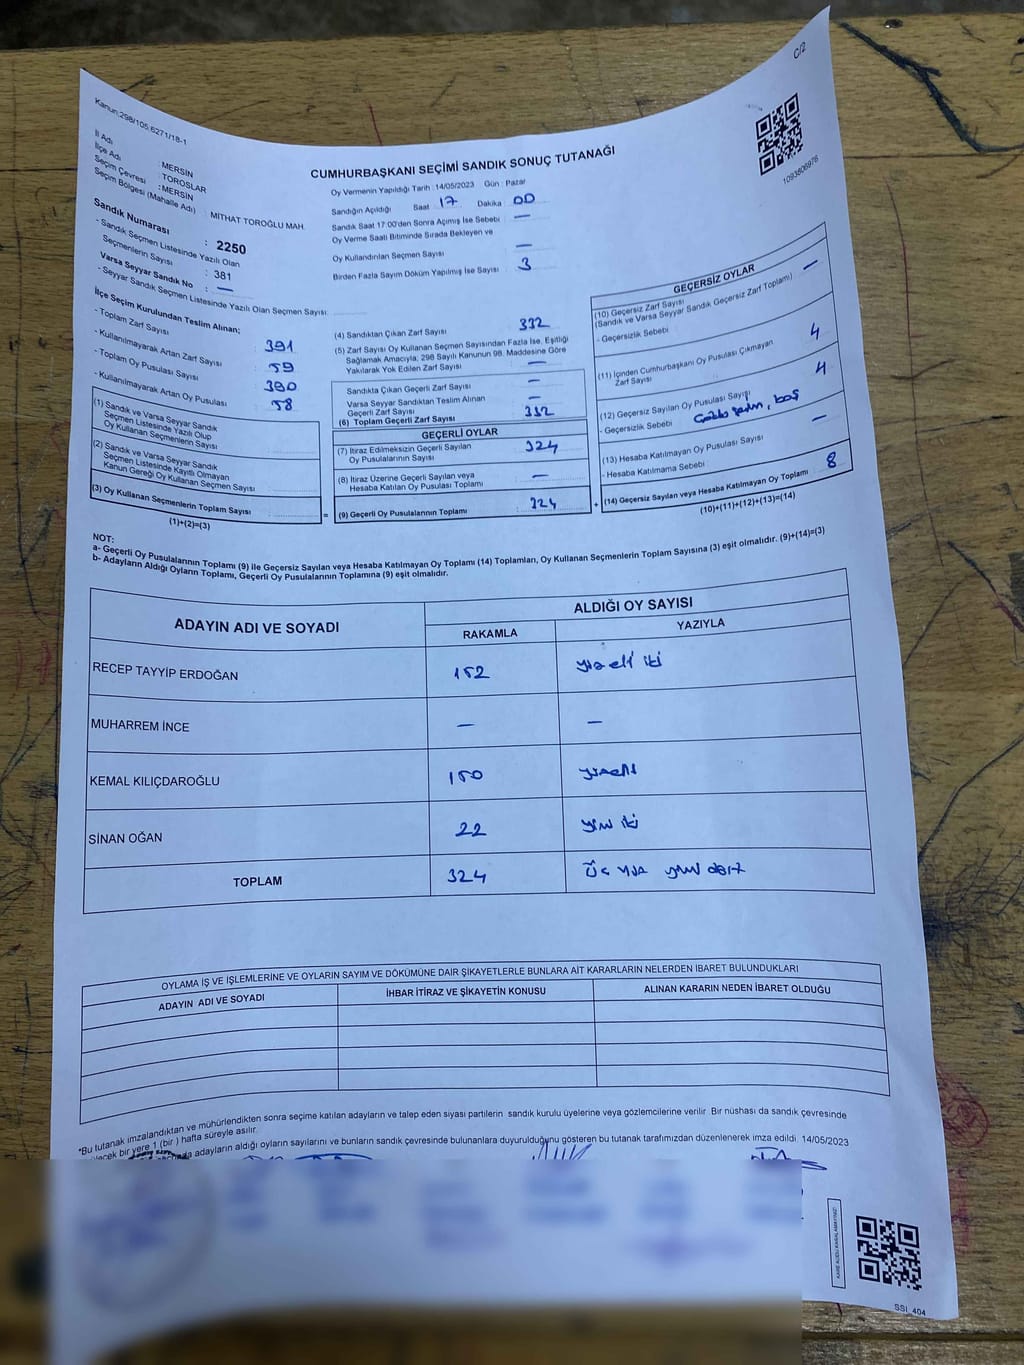 C/2
Kanun:298/105,6271/18-1
1093806976
CUMHURBAŞKANI SEÇİMİ SANDIK SONUÇ TUTANAĞI
İl Adı : MERSİN
İlçe Adı : TOROSLAR
Seçim Çevresi : MERSİN
Seçim Bölgesi (Mahalle Adı) : MİTHAT TOROĞLU MAH.
Sandık Numarası : 2250
- Sandık Seçmen Listesinde Yazılı Olan
Seçmenlerin Sayısı : 381
Varsa Seyyar Sandık No : —
- Seyyar Sandık Seçmen Listesinde Yazılı Olan Seçmen Sayısı:
Oy Vermenin Yapıldığı Tarih : 14/05/2023 Gün : Pazar
Sandığın Açıldığı Saat 17 Dakika 00
Sandık Saat 17:00'den Sonra Açımış İse Sebebi : —
Oy Verme Saati Bitiminde Sırada Bekleyen ve
Oy Kullandırılan Seçmen Sayısı —
Birden Fazla Sayım Döküm Yapılmış İse Sayısı : 3
İlçe Seçim Kurulundan Teslim Alınan;
- Toplam Zarf Sayısı 391
- Kullanılmayarak Artan Zarf Sayısı 59
- Toplam Oy Pusulası Sayısı 390
- Kullanılmayarak Artan Oy Pusulası 58
(1) Sandık ve Varsa Seyyar Sandık
Seçmen Listesinde Yazılı Olup
Oy Kullanan Seçmenlerin Sayısı
(2) Sandık ve Varsa Seyyar Sandık
Seçmen Listesinde Kayıtlı Olmayan
Kanun Gereği Oy Kullanan Seçmen Sayısı
(3) Oy Kullanan Seçmenlerin Toplam Sayısı
(1)+(2)=(3)
(4) Sandıktan Çıkan Zarf Sayısı 332
(5) Zarf Sayısı Oy Kullanan Seçmen Sayısından Fazla İse, Eşitliği
Sağlamak Amacıyla; 298 Sayılı Kanunun 98. Maddesine Göre
Yakılarak Yok Edilen Zarf Sayısı —
Sandıkta Çıkan Geçerli Zarf Sayısı —
Varsa Seyyar Sandıktan Teslim Alınan
Geçerli Zarf Sayısı —
(6) Toplam Geçerli Zarf Sayısı 332
GEÇERLİ OYLAR
(7) İtiraz Edilmeksizin Geçerli Sayılan
Oy Pusulalarının Sayısı 324
(8) İtiraz Üzerine Geçerli Sayılan veya
Hesaba Katılan Oy Pusulası Toplamı —
= (9) Geçerli Oy Pusulalarının Toplamı 324
GEÇERSİZ OYLAR
(10) Geçersiz Zarf Sayısı
(Sandık ve Varsa Seyyar Sandık Geçersiz Zarf Toplamı) —
- Geçersizlik Sebebi
(11) İçinden Cumhurbaşkanı Oy Pusulası Çıkmayan
Zarf Sayısı 4
(12) Geçersiz Sayılan Oy Pusulası Sayısı 4
- Geçersizlik Sebebi boş
(13) Hesaba Katılmayan Oy Pusulası Sayısı —
- Hesaba Katılmama Sebebi
+ (14) Geçersiz Sayılan veya Hesaba Katılmayan Oy Toplamı 8
(10)+(11)+(12)+(13)=(14)
NOT:
a- Geçerli Oy Pusulalarının Toplamı (9) ile Geçersiz Sayılan veya Hesaba Katılmayan Oy Toplamı (14) Toplamları, Oy Kullanan Seçmenlerin Toplam Sayısına (3) eşit olmalıdır. (9)+(14)=(3)
b- Adayların Aldığı Oyların Toplamı, Geçerli Oy Pusulalarının Toplamına (9) eşit olmalıdır.
ADAYIN ADI VE SOYADI ALDIĞI OY SAYISI
RAKAMLA YAZIYLA
RECEP TAYYİP ERDOĞAN 152 yüzelli iki
MUHARREM İNCE — —
KEMAL KILIÇDAROĞLU 150 yüzelli
SİNAN OĞAN 22 yirmi iki
TOPLAM 324 üç yüz yirmi dört
OYLAMA İŞ VE İŞLEMLERİNE VE OYLARIN SAYIM VE DÖKÜMÜNE DAİR ŞİKAYETLERLE BUNLARA AİT KARARLARIN NELERDEN İBARET BULUNDUKLARI
ADAYIN ADI VE SOYADI İHBAR İTİRAZ VE ŞİKAYETİN KONUSU ALINAN KARARIN NEDEN İBARET OLDUĞU
*Bu tutanak imzalandıktan ve mühürlendikten sonra seçime katılan adayların ve talep eden siyasi partilerin sandık kurulu üyelerine veya gözlemcilerine verilir. Bir nüshası da sandık çevresinde
bir yere 1 (bir) hafta süreyle asılır.
adayların aldığı oyların sayılarını ve bunların sandık çevresinde bulunanlara duyurulduğunu gösteren bu tutanak tarafımızdan düzenlenerek imza edildi. 14/05/2023
KARE KODU KARALAMAYINIZ!
SSI_404